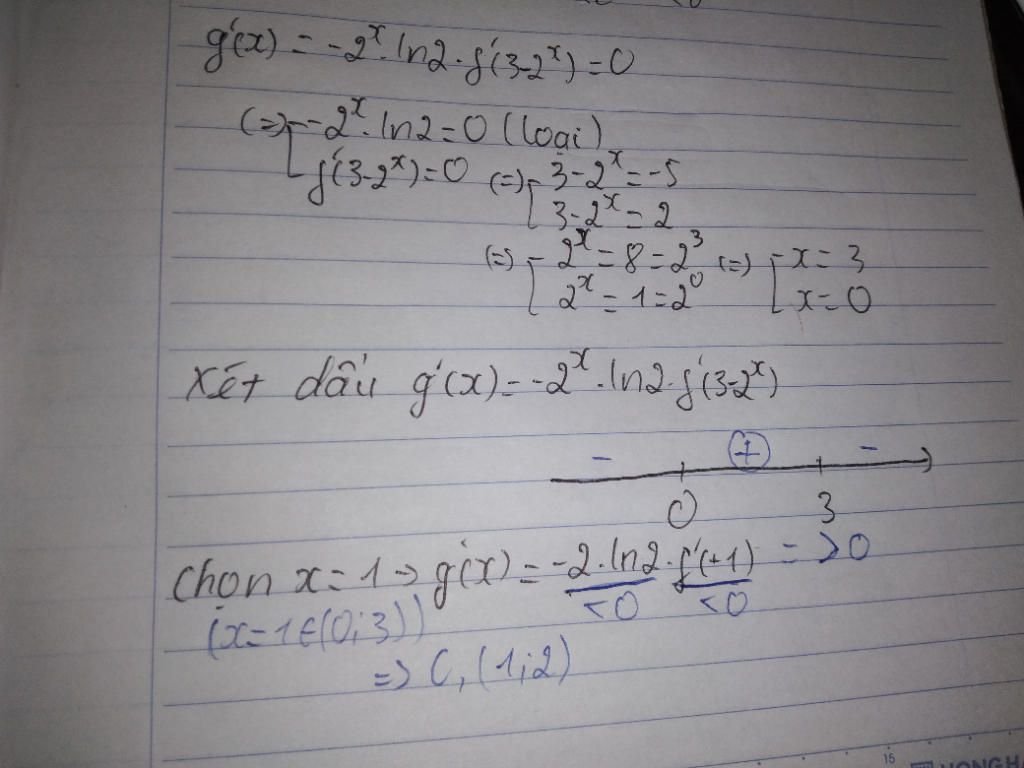 g'(x) = -2^x. ln2. f'(3-2^x) = 0
(=) [ -2^x. ln2 = 0 (loại)
f'(3-2^x) = 0 (=) [ 3-2^x = -5
3-2^x = 2
(=) [ 2^x = 8 = 2^3 (=) [ x = 3
2^x = 1 = 2^0 x = 0
Xét dấu g'(x) = -2^x. ln2. f'(3-2^x)
- + -
0 3
Chọn x = 1 → g'(x) = -2. ln2. f'(+1) = >0
(x=1∈(0;3)) <0 <0
=> C, (1;2)
15
HONGH